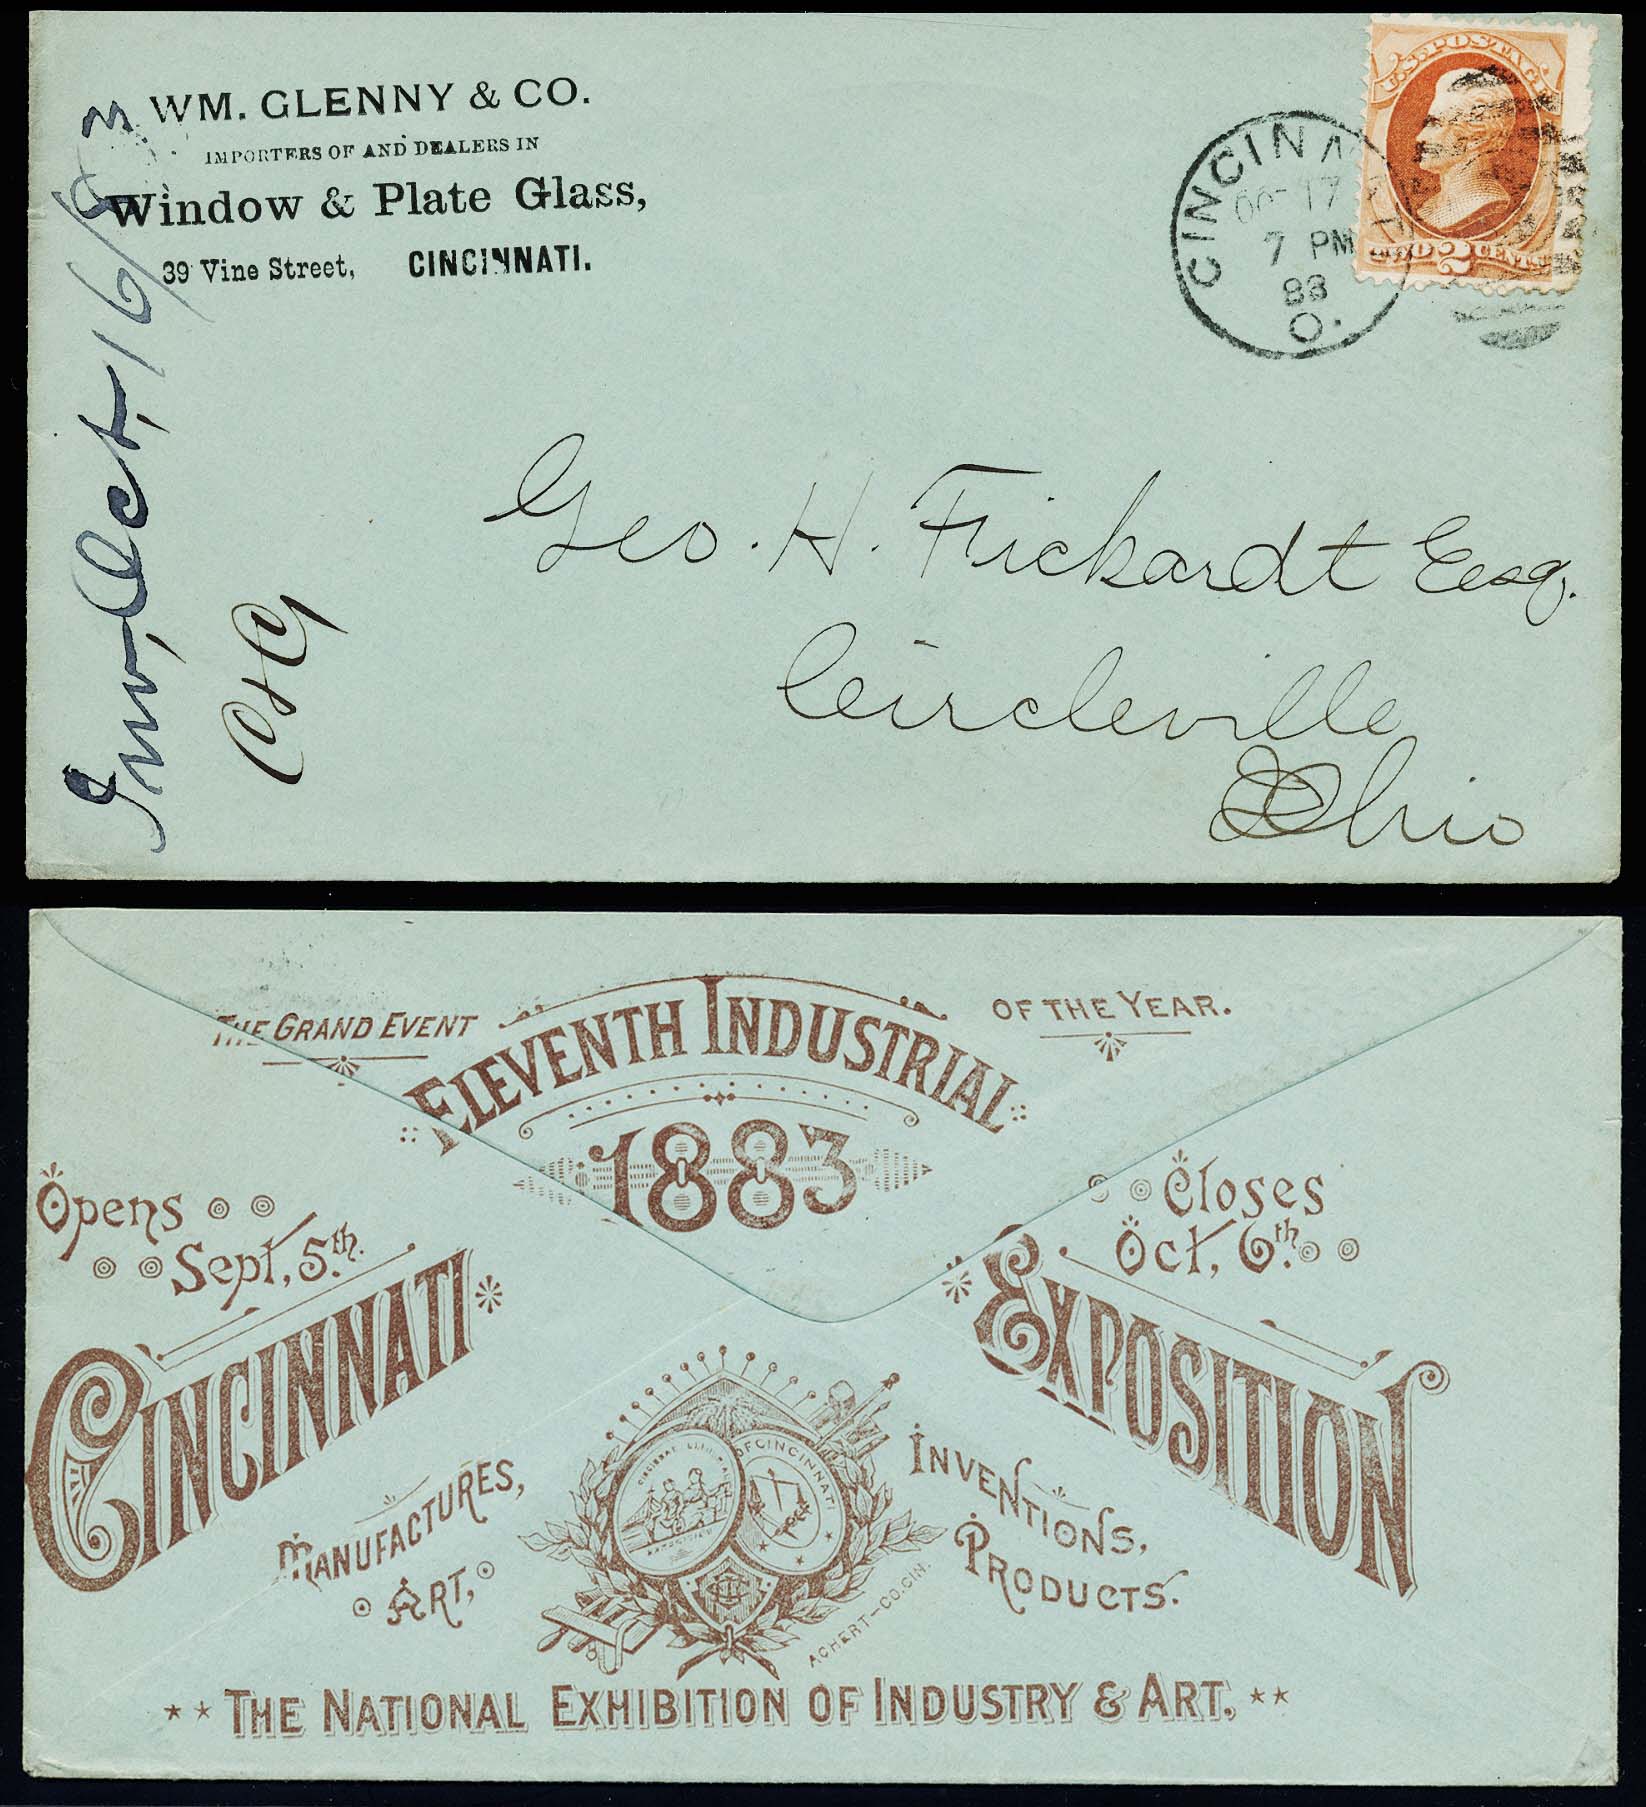 WM. GLENNY & CO.
IMPORTERS OF AND DEALERS IN
Window & Plate Glass,
39 Vine Street, CINCINNATI.
Inv, Oct, 16/83
CINCINNATI
OC 17
7 PM
83
O.
U.S. POSTAGE
TWO 2 CENTS
Geo. H. Fickardt Esq.
Circleville
Ohio
THE GRAND EVENT
OF THE YEAR.
ELEVENTH INDUSTRIAL
1883
Opens
Sept, 5th.
Closes
Oct, 6th.
CINCINNATI
EXPOSITION
MANUFACTURES,
ART,
INVENTIONS,
PRODUCTS.
OF CINCINNATI
ACHERT-CO. CIN.
THE NATIONAL EXHIBITION OF INDUSTRY & ART.